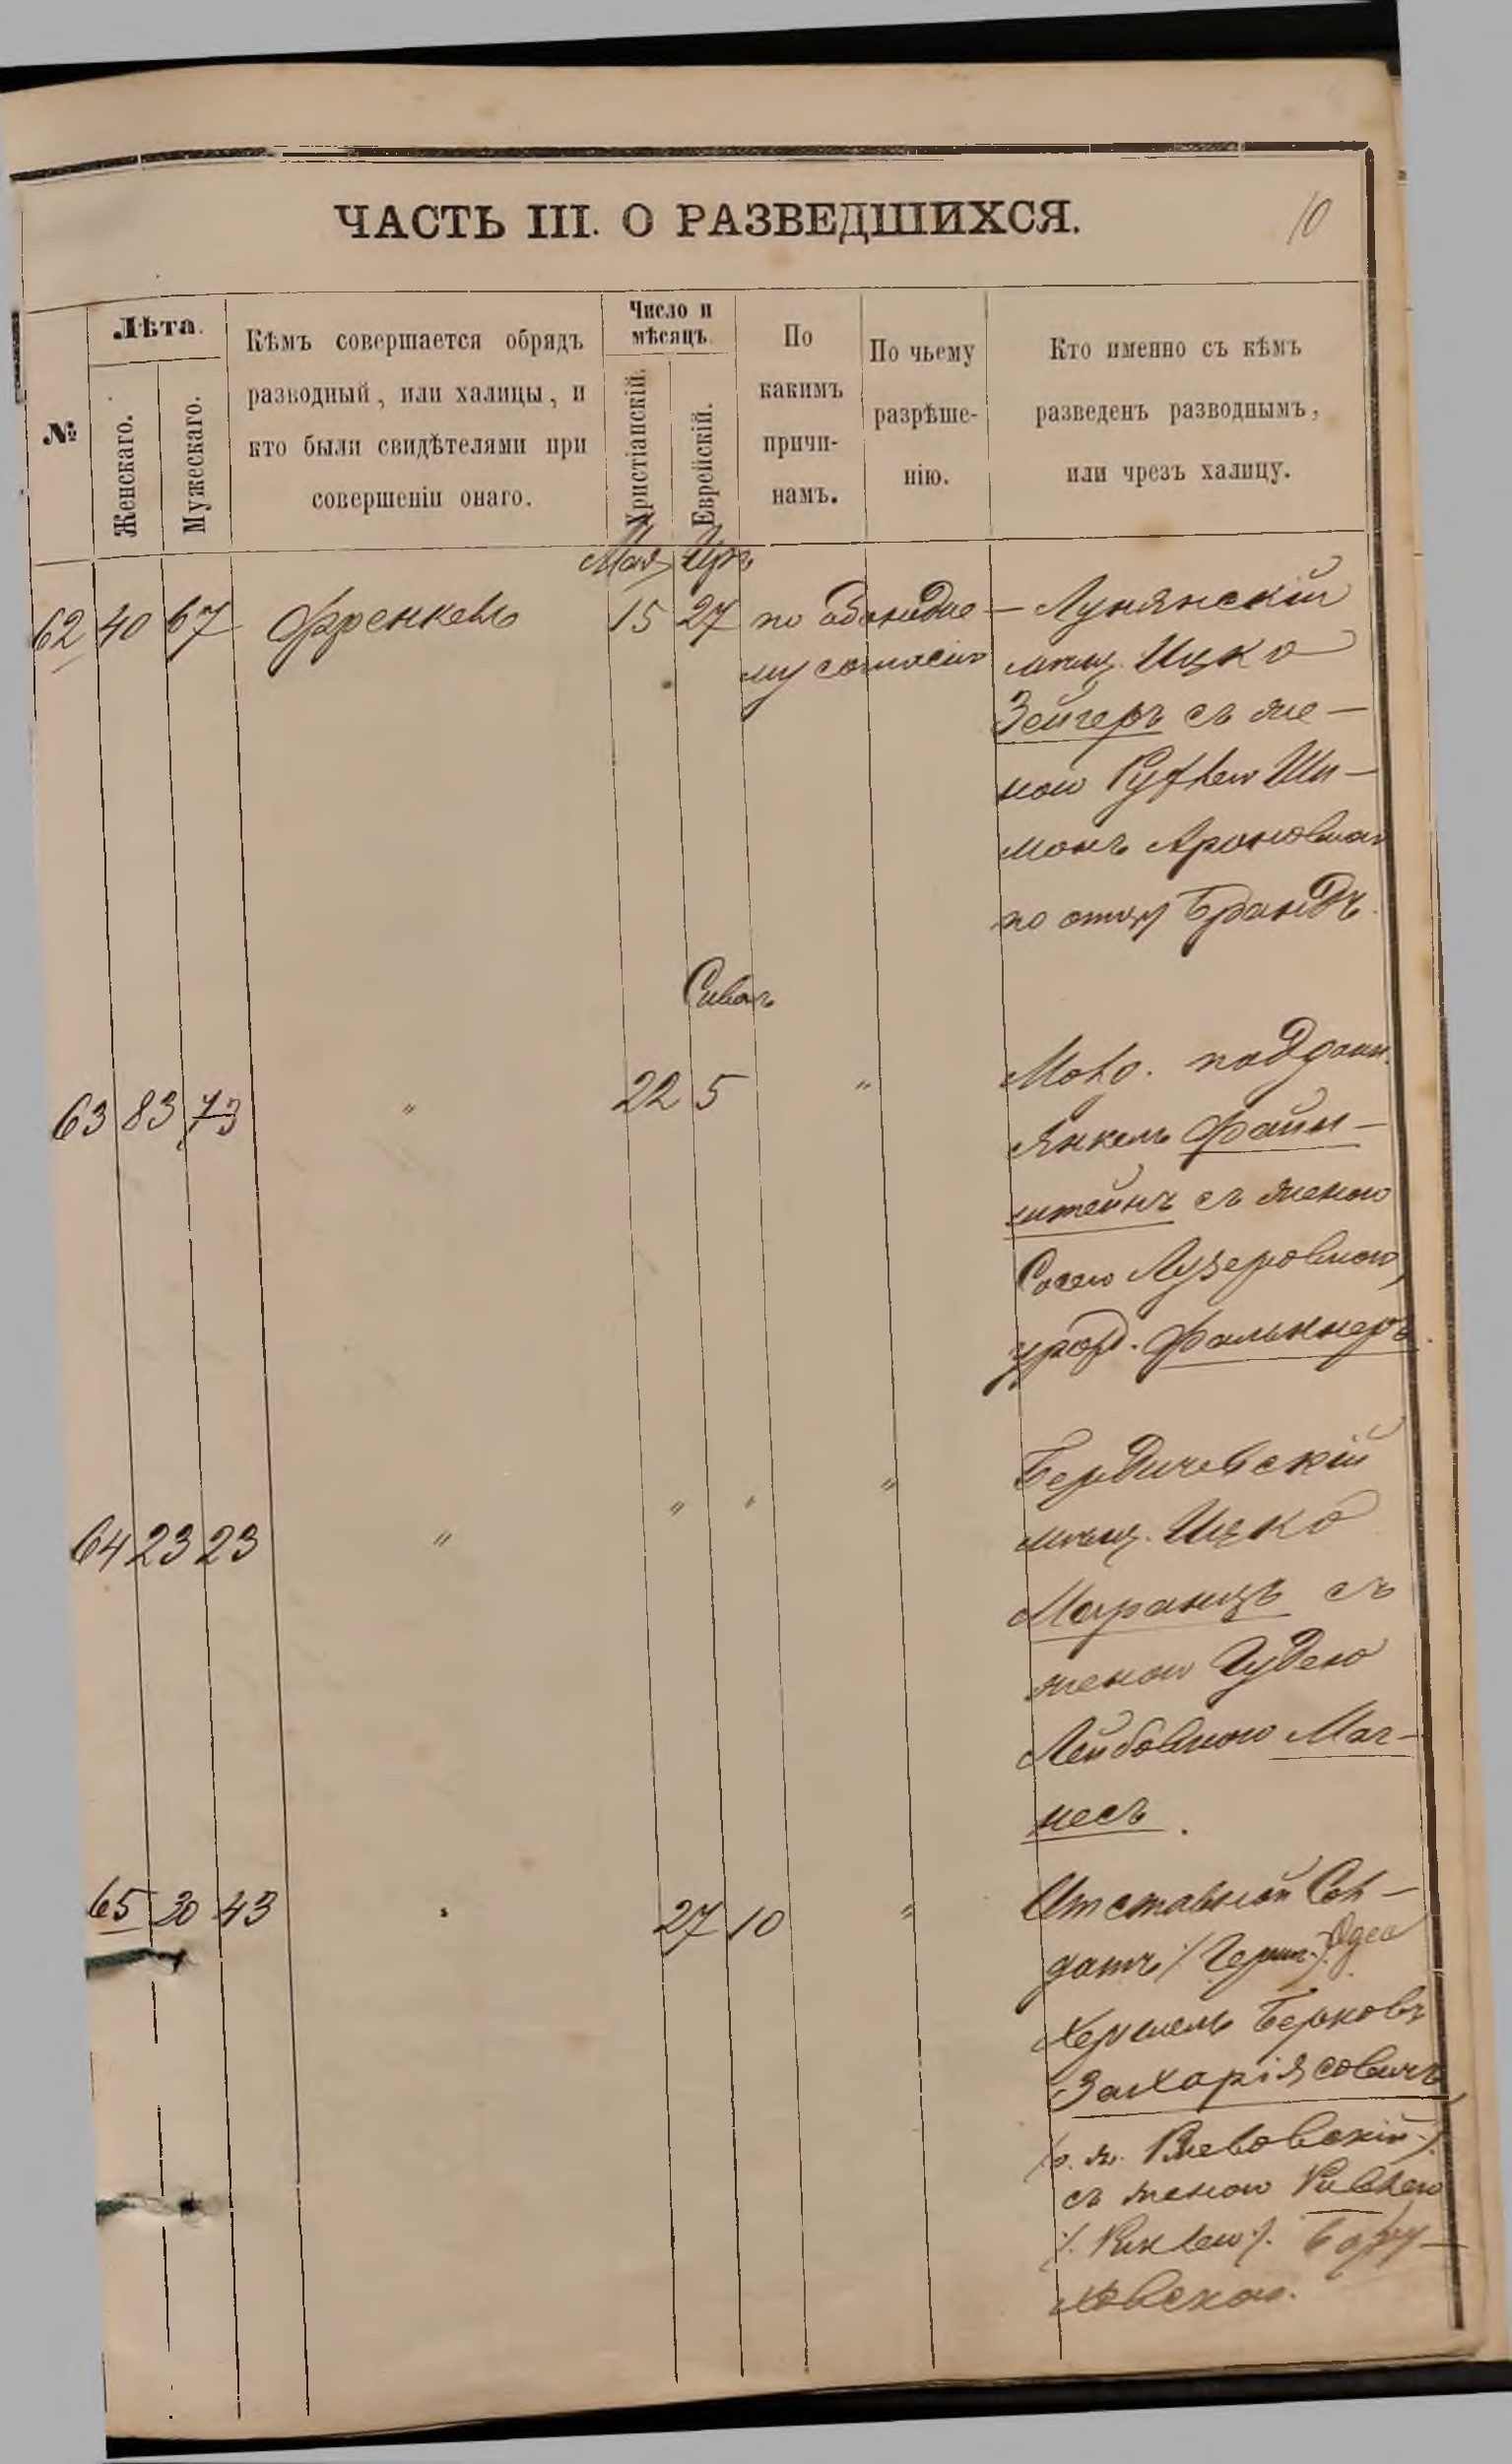 ЧАСТЬ III. О РАЗВЕДШИХСЯ.
10
№
Лѣта.
Женскаго.
Мужескаго.
Кѣмъ совершается обрядъ
разводный, или халицы, и
кто были свидѣтелями при
совершеніи онаго.
Число и
мѣсяцъ.
Христіанскій.
Еврейскій.
По
какимъ
причи-
намъ.
По чьему
разрѣше-
нію.
Кто именно съ кѣмъ
разведенъ разводнымъ,
или чрезъ халицу.
Мая Іяръ
62 40 67 Френкель 15 27 по обоюдно- му согласію
Лунянскій
мѣщ. Ицко
Зейгеръ съ же-
ною Руфлею Ши-
монъ Ароновною
по отцу Брандъ.
Сиванъ
63 83 73 " 22 5 "
Молд. поддан.
Янкель Файн-
штейнъ съ женою
Сосею Лузеровною,
урожд. Фалькнеръ.
64 23 23 " " " "
Бердичевскій
мѣщ. Ицко
Маранцъ съ
женою Гудею
Лейбовною Маг-
несъ.
65 30 43 " 27 10 "
Отставной Сол-
датъ
Хершель Берковъ
Захаріясовичъ,
съ женою Ривкею